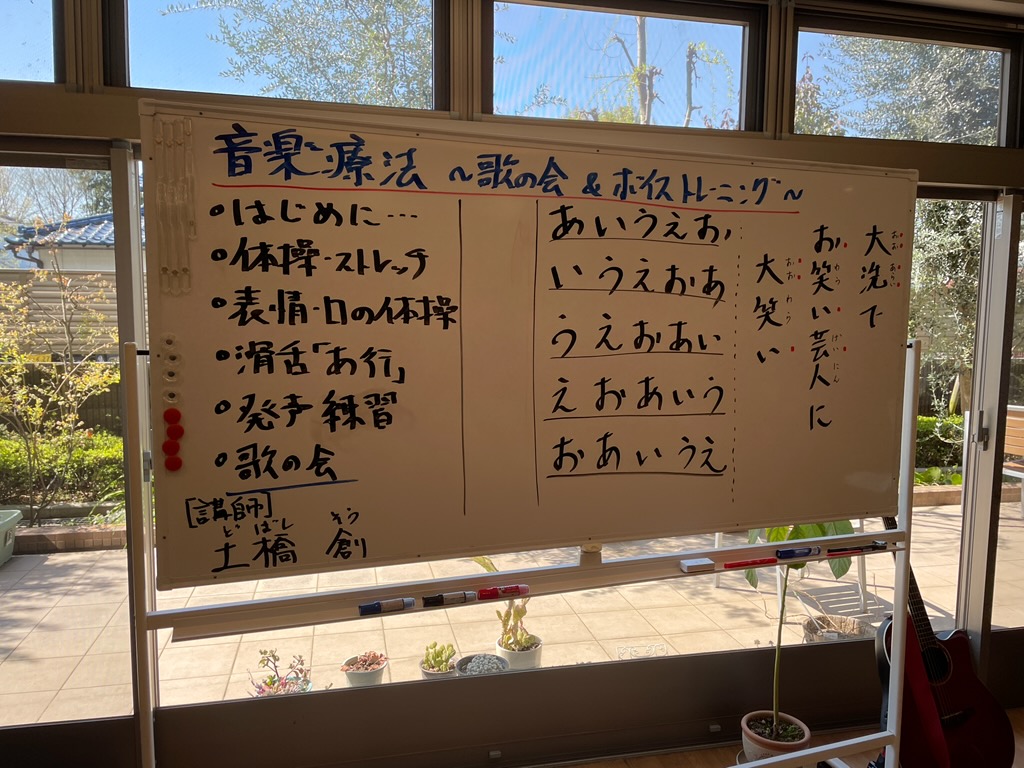 音楽療法 ～歌の会 & ボイストレーニング～
・はじめに…
・体操・ストレッチ
・表情・口の体操
・滑舌「あ行」
・発声練習
・歌の会
[講師]
どばし そう
土橋 創
あいうえお
いうえおあ
うえおあい
えおあいう
おあいうえ
おお あらい
大洗で
わら げいにん
お笑い芸人に
おお わら
大笑い